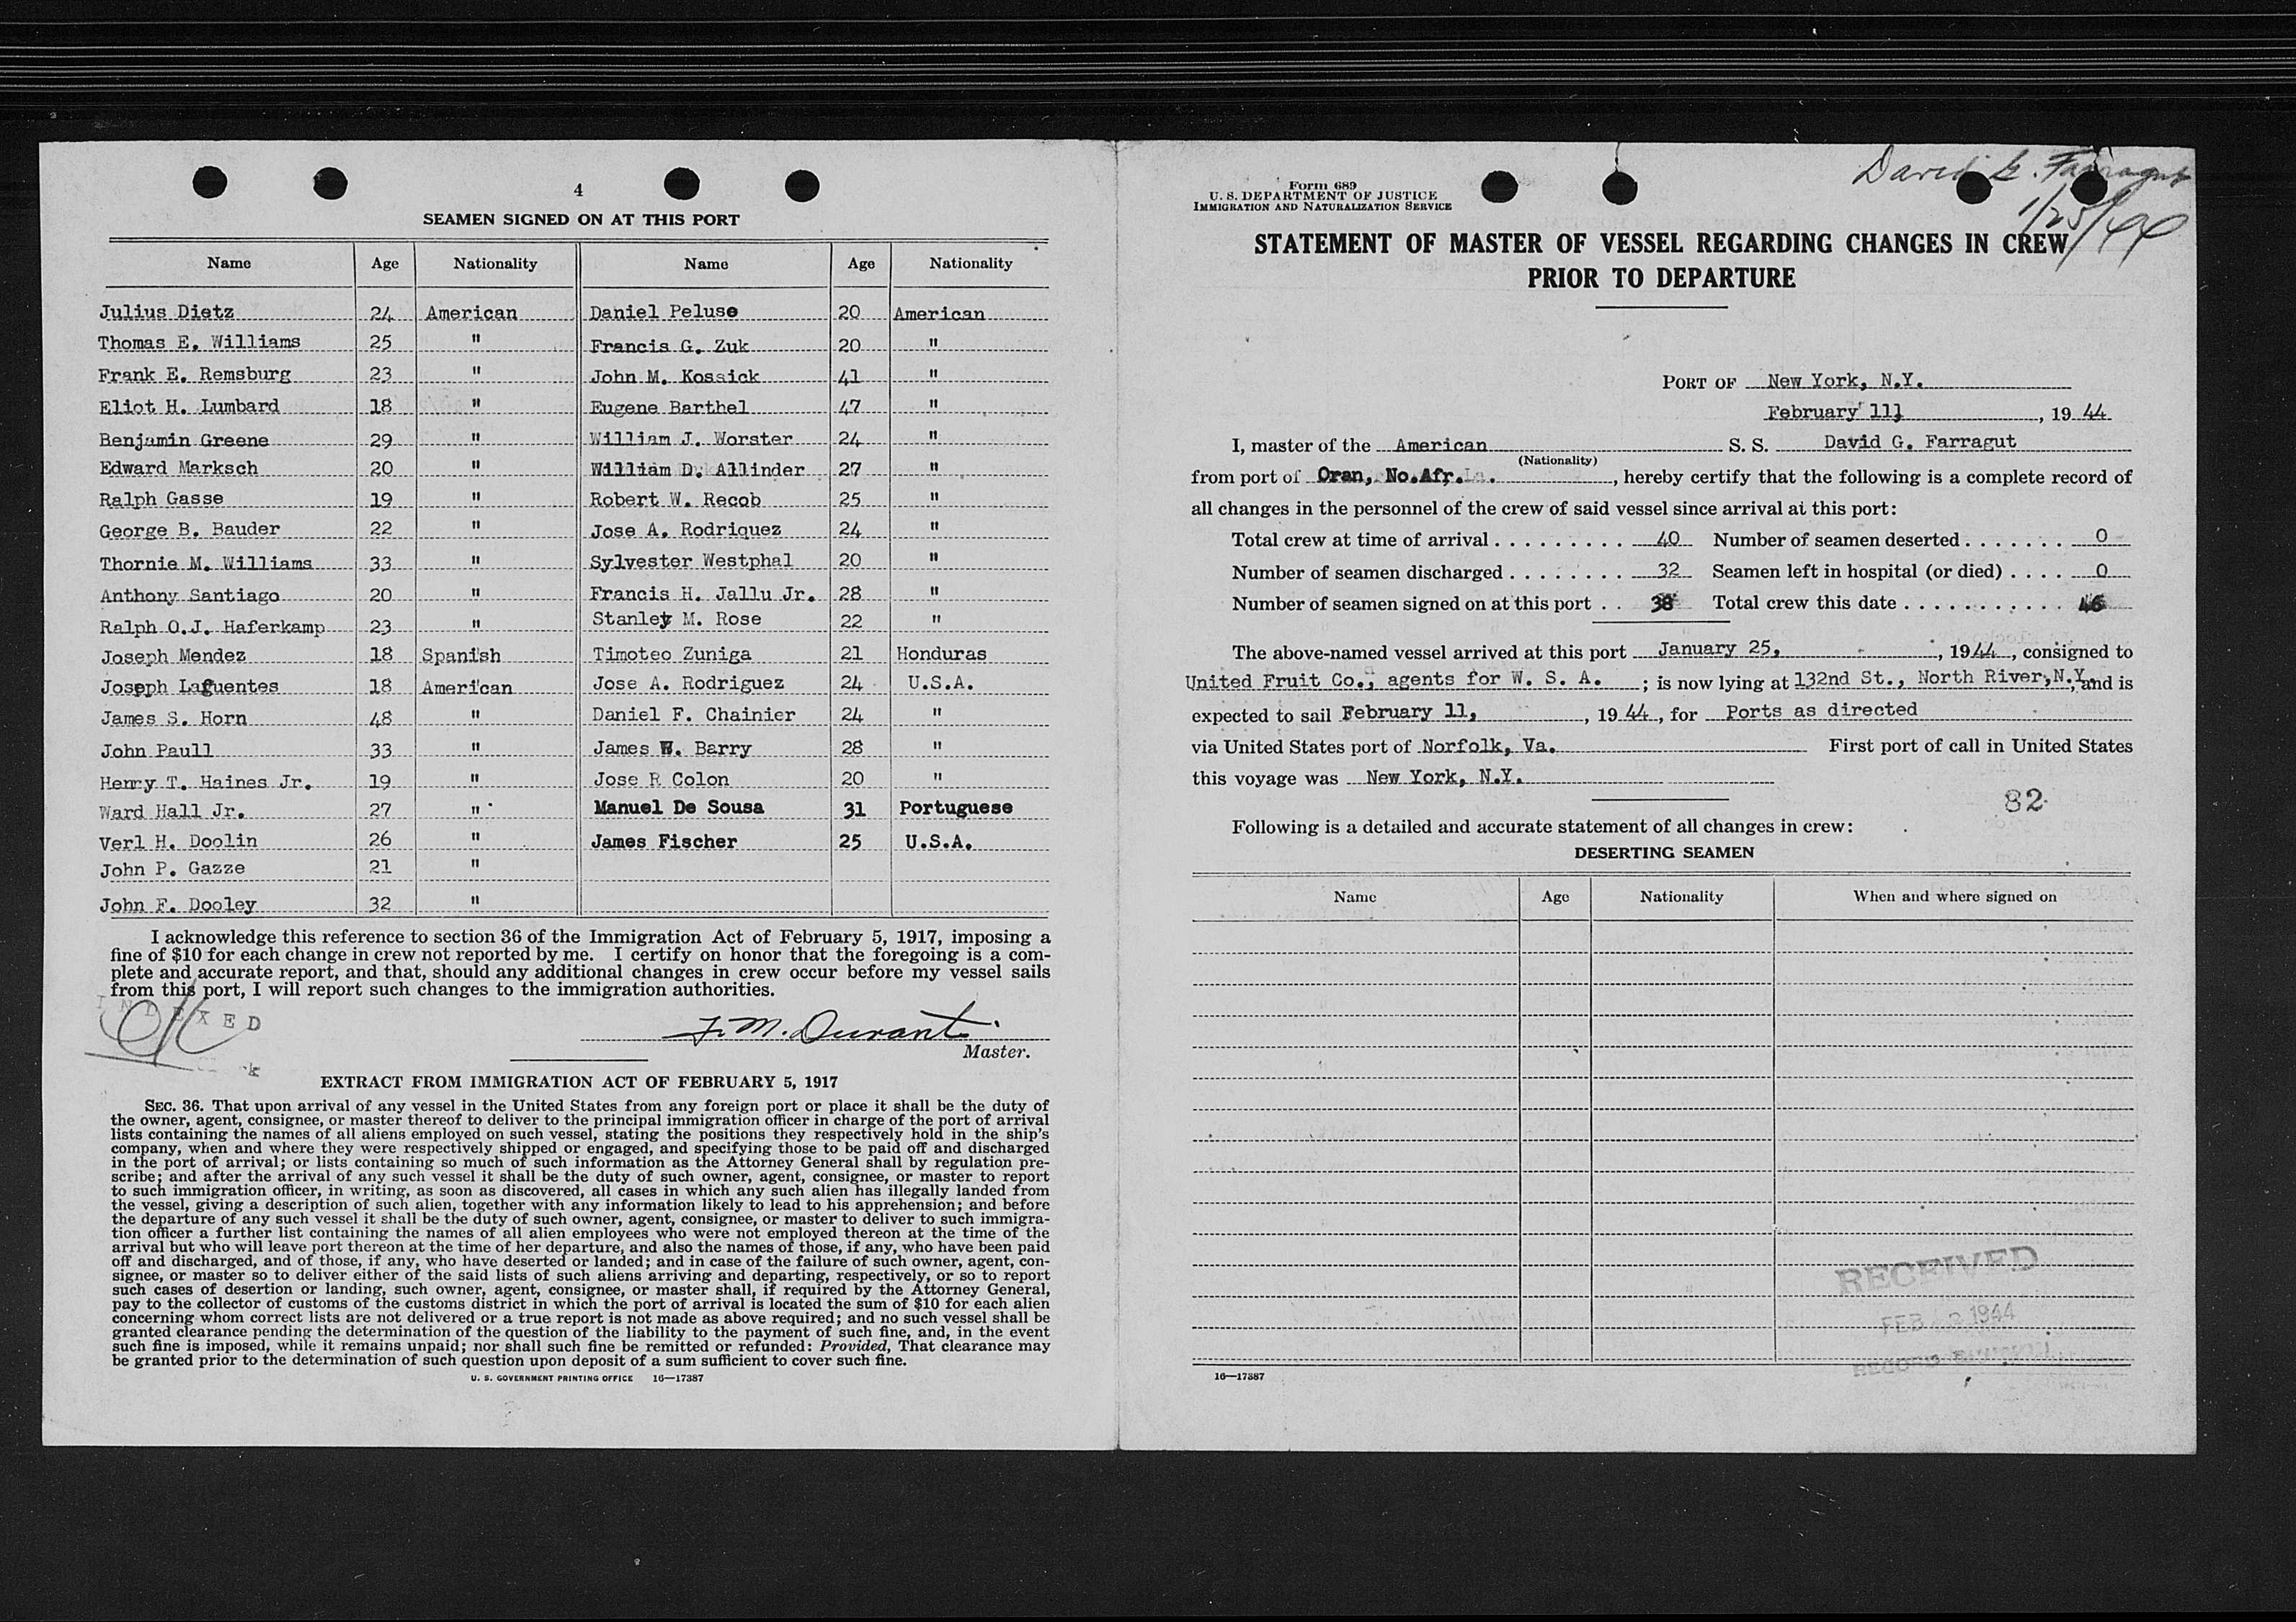 4
SEAMEN SIGNED ON AT THIS PORT
Name Age Nationality Name Age Nationality
Julius Dietz 24 American Daniel Peluso 20 American
Thomas E. Williams 25 " Francis G. Zuk 20 "
Frank E. Remsburg 23 " John M. Kossick 41 "
Eliot H. Lumbard 18 " Eugene Barthel 47 "
Benjamin Greene 29 " William J. Worster 24 "
Edward Marksch 20 " William D. Allinder 27 "
Ralph Gasse 19 " Robert W. Recob 25 "
George B. Bauder 22 " Jose A. Rodriquez 24 "
Thornie M. Williams 33 " Sylvester Westphal 20 "
Anthony Santiago 20 " Francis H. Jallu Jr. 28 "
Ralph O.J. Haferkamp 23 " Stanley M. Rose 22 "
Joseph Mendez 18 Spanish Timoteo Zuniga 21 Honduras
Joseph Lafuentes 18 American Jose A. Rodriguez 24 U.S.A.
James S. Horn 48 " Daniel F. Chainier 24 "
John Paull 33 " James W. Barry 28 "
Henry T. Haines Jr. 19 " Jose R Colon 20 "
Ward Hall Jr. 27 " Manuel De Sousa 31 Portuguese
Verl H. Doolin 26 " James Fischer 25 U.S.A.
John P. Gazze 21 "
John F. Dooley 32 "
I acknowledge this reference to section 36 of the Immigration Act of February 5, 1917, imposing a
fine of $10 for each change in crew not reported by me. I certify on honor that the foregoing is a com-
plete and accurate report, and that, should any additional changes in crew occur before my vessel sails
from this port, I will report such changes to the immigration authorities.
INDEXED
OK
J. M. Durant
Master.
EXTRACT FROM IMMIGRATION ACT OF FEBRUARY 5, 1917
SEC. 36. That upon arrival of any vessel in the United States from any foreign port or place it shall be the duty of
the owner, agent, consignee, or master thereof to deliver to the principal immigration officer in charge of the port of arrival
lists containing the names of all aliens employed on such vessel, stating the positions they respectively hold in the ship's
company, when and where they were respectively shipped or engaged, and specifying those to be paid off and discharged
in the port of arrival; or lists containing so much of such information as the Attorney General shall by regulation pre-
scribe; and after the arrival of any such vessel it shall be the duty of such owner, agent, consignee, or master to report
to such immigration officer, in writing, as soon as discovered, all cases in which any such alien has illegally landed from
the vessel, giving a description of such alien, together with any information likely to lead to his apprehension; and before
the departure of any such vessel it shall be the duty of such owner, agent, consignee, or master to deliver to such immigra-
tion officer a further list containing the names of all alien employees who were not employed thereon at the time of the
arrival but who will leave port thereon at the time of her departure, and also the names of those, if any, who have been paid
off and discharged, and of those, if any, who have deserted or landed; and in case of the failure of such owner, agent, con-
signee, or master so to deliver either of the said lists of such aliens arriving and departing, respectively, or so to report
such cases of desertion or landing, such owner, agent, consignee, or master shall, if required by the Attorney General,
pay to the collector of customs of the customs district in which the port of arrival is located the sum of $10 for each alien
concerning whom correct lists are not delivered or a true report is not made as above required; and no such vessel shall be
granted clearance pending the determination of the question of the liability to the payment of such fine, and, in the event
such fine is imposed, while it remains unpaid; nor shall such fine be remitted or refunded: Provided, That clearance may
be granted prior to the determination of such question upon deposit of a sum sufficient to cover such fine.
U. S. GOVERNMENT PRINTING OFFICE 16—17387
David G. Farragut
1/25/44
Form 689
U. S. DEPARTMENT OF JUSTICE
IMMIGRATION AND NATURALIZATION SERVICE
STATEMENT OF MASTER OF VESSEL REGARDING CHANGES IN CREW
PRIOR TO DEPARTURE
PORT OF New York, N.Y.
February 11, 1944
I, master of the American S. S. David G. Farragut
(Nationality)
from port of Oran, No.Afr. , hereby certify that the following is a complete record of
all changes in the personnel of the crew of said vessel since arrival at this port:
Total crew at time of arrival . . . . . . . . . 40 Number of seamen deserted . . . . . . . 0
Number of seamen discharged . . . . . . . . 32 Seamen left in hospital (or died) . . . . 0
Number of seamen signed on at this port . . 38 Total crew this date . . . . . . . . . . . 46
The above-named vessel arrived at this port January 25, , 1944 , consigned to
United Fruit Co., agents for W. S. A. ; is now lying at 132nd St., North River, N.Y. , and is
expected to sail February 11, , 1944 , for Ports as directed
via United States port of Norfolk, Va. First port of call in United States
this voyage was New York, N.Y.
82
Following is a detailed and accurate statement of all changes in crew:
DESERTING SEAMEN
Name Age Nationality When and where signed on
RECEIVED
FEB 1944
RECORD
16—17387